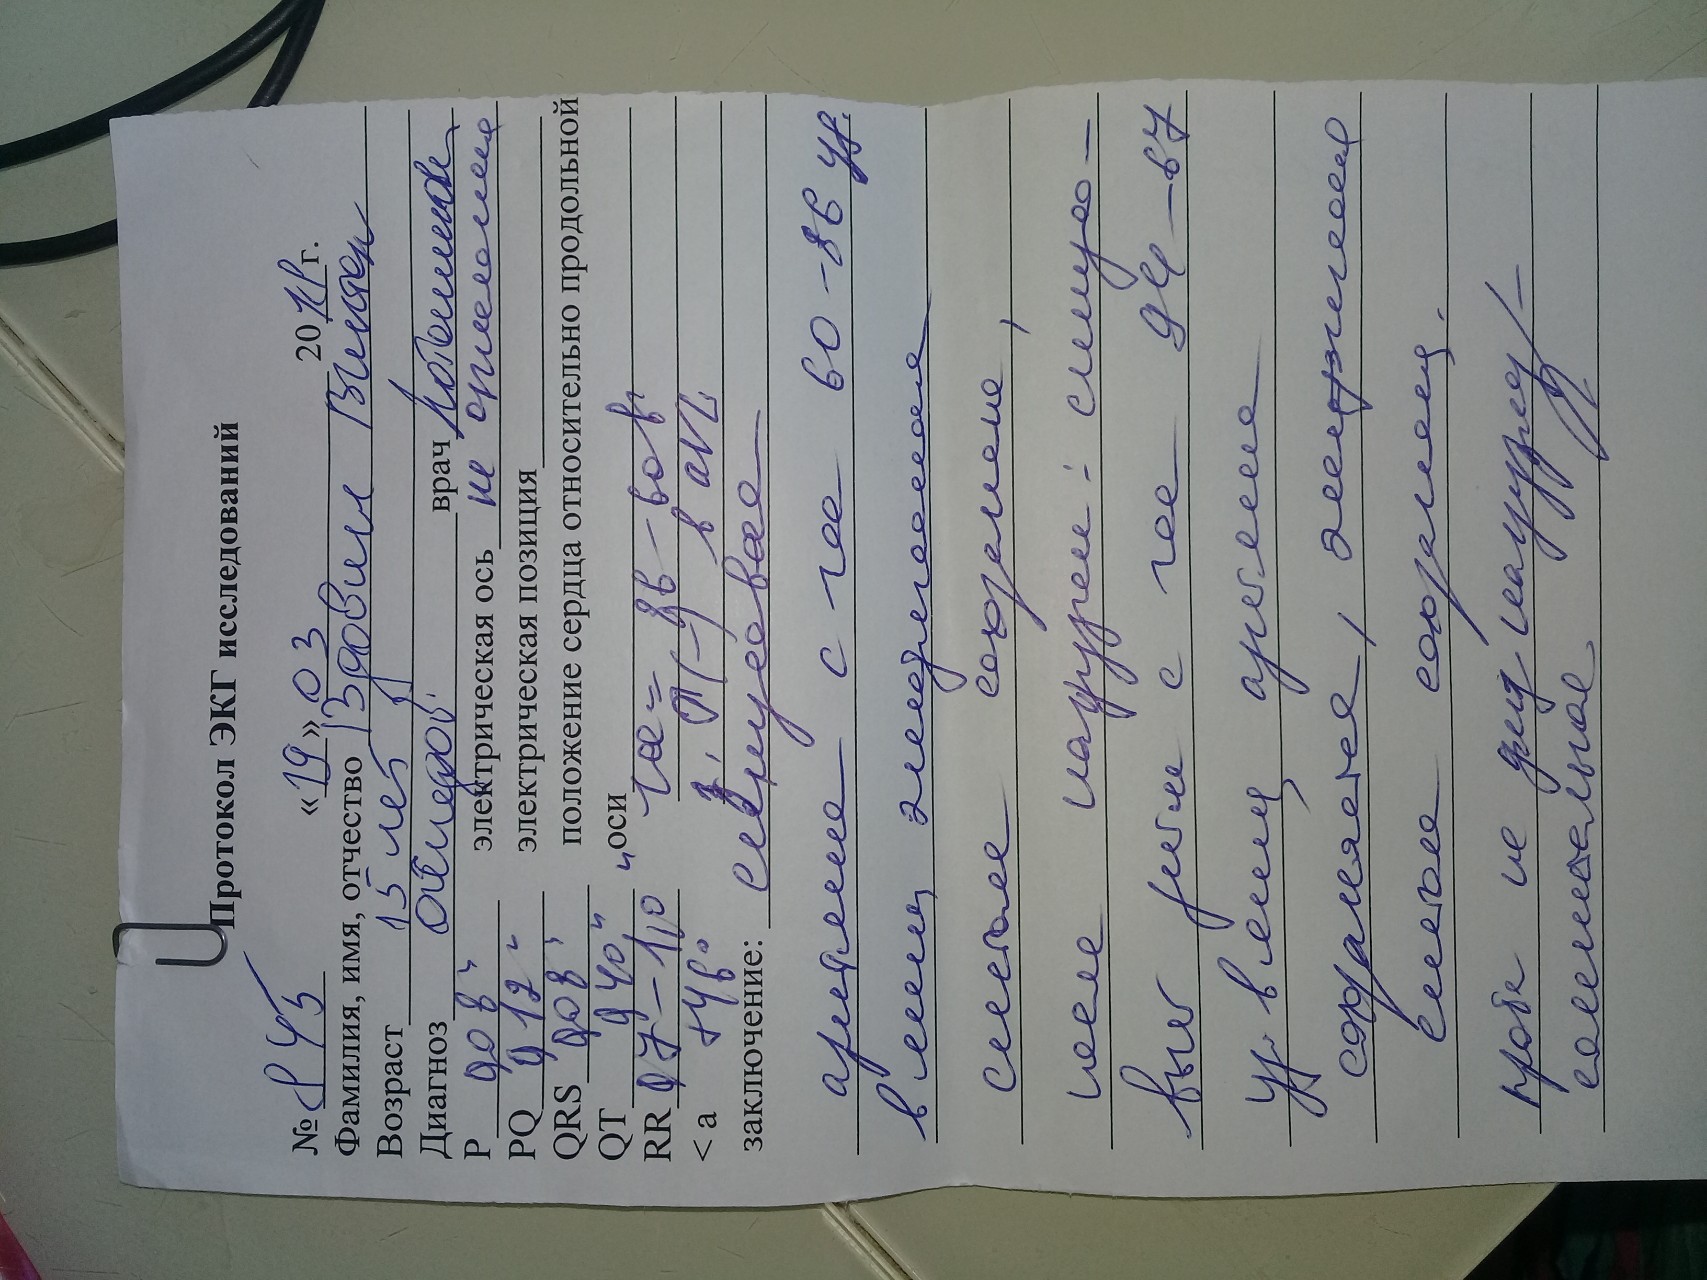 Протокол ЭКГ исследований
№ 845 «19» 03 2018г.
Фамилия, имя, отчество Вдовин Виктор
Возраст 15 лет
Диагноз врач
P 0,08" электрическая ось не отклонена
PQ 0,12" электрическая позиция
QRS 0,08" положение сердца относительно продольной
QT 0,40" оси
RR 0,7-1,0" ЧСС= 86-60 в 1'
< a +48° з. P(-) в aVL
заключение: синусовая
аритмия с чсс 60-86 уд.
в мин, электрическая
систола сохранена,
после нагрузки: синусо-
вый ритм с чсс 94-67
уд. в мин, аритмия
сохраняется, электрическая
систола сохранена.
проба на физ нагрузку -
сомнительная